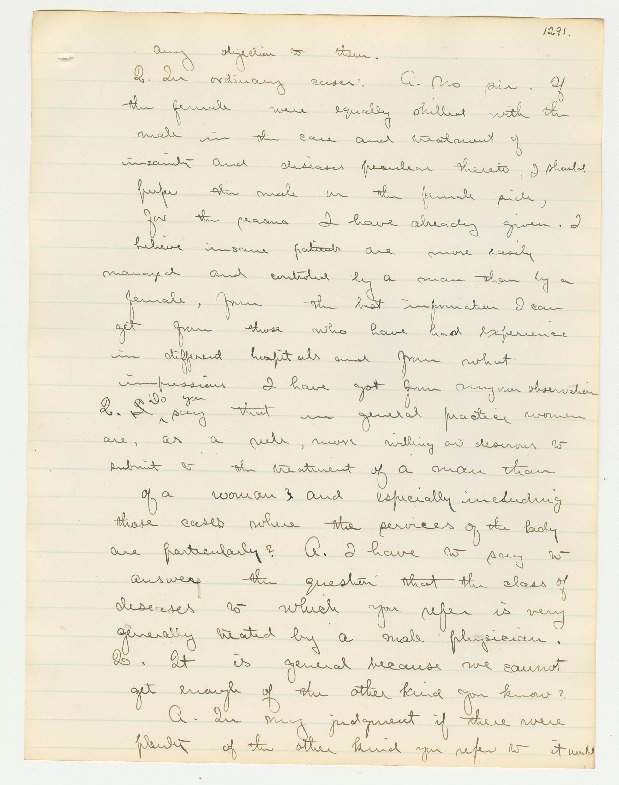 1291.
any objection to them.
Q. In ordinary cases? A. No sir. If
the female were equally skilled with the
male in the care and treatment of
insanity and diseases peculiar thereto, I should
prefer the male on the female side,
for the reasons I have already given. I
believe insane patients are more easily
managed and controlled by a man than by a
female, from the best information I can
get from those who have had experience
in different hospitals and from what
impressions I have got from my own observation
Q. Do you say that in general practice women
are, as a rule, more willing or desirous to
submit to the treatment of a man than
of a woman? and especially including
those cases where the services of the lady
are particularly? A. I have to say to
answer the question that the class of
diseases to which you refer is very
generally treated by a male physician.
Q. It is general because we cannot
get enough of the other kind you know?
A. In my judgment if there were
plenty of the other kind you refer to it would